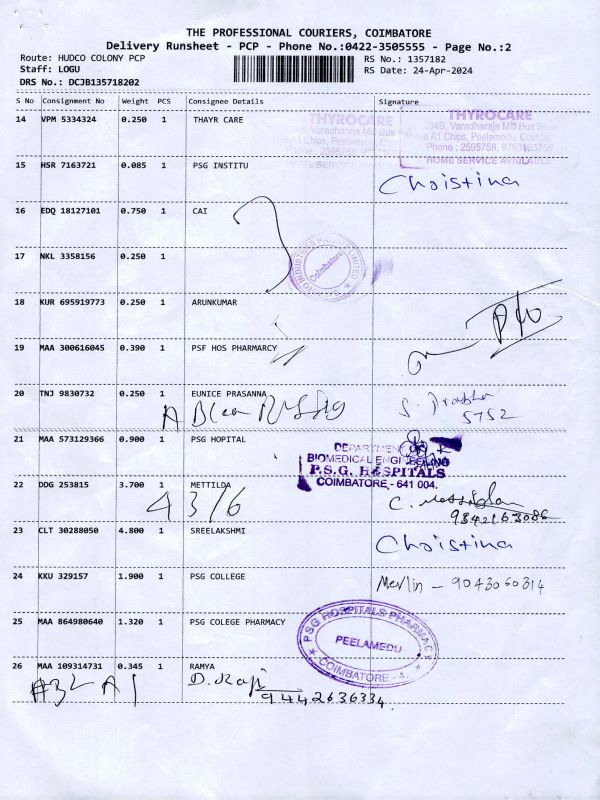 THE PROFESSIONAL COURIERS, COIMBATORE
Delivery Runsheet - PCP - Phone No.:0422-3505555 - Page No.:2
Route: HUDCO COLONY PCP RS No.: 1357182
Staff: LOGU RS Date: 24-Apr-2024
DRS No.: DCJB135718202
S No Consignment No Weight PCS Consignee Details Signature
14 VPM 5334324 0.250 1 THAYR CARE
THYROCARE THYROCARE
Varadharaja Mill Bus 34B, Varadharaja Mill Bus
Chips, Peelamedu, A1 Chips, Peelamedu,
Phone : 2595758, Phone : 2595758,
HOME SERVICE AVAILABLE
15 HSR 7163721 0.085 1 PSG INSTITU Christina
16 EDQ 18127101 0.750 1 CAI
Coimbatore
17 NKL 3358156 0.250 1
18 KUR 695919773 0.250 1 ARUNKUMAR
19 MAA 300616045 0.390 1 PSF HOS PHARMARCY
20 TNJ 9830732 0.250 1 EUNICE PRASANNA
A Block
5752
21 MAA 573129366 0.900 1 PSG HOPITAL
DEPARTMENT
BIOMEDICAL ENGINEERING
P.S.G. HOSPITALS
COIMBATORE - 641 004.
22 DDG 253815 3.700 1 METTILDA
4316
9842163086
23 CLT 30288050 4.800 1 SREELAKSHMI Christina
24 KKU 329157 1.900 1 PSG COLLEGE Merlin - 9043060314
25 MAA 864980640 1.320 1 PSG COLEGE PHARMACY
PSG HOSPITALS PHARMACY
PEELAMEDU
COIMBATORE - 4.
26 MAA 109314731 0.345 1 RAMYA
D. Raji
9442636334